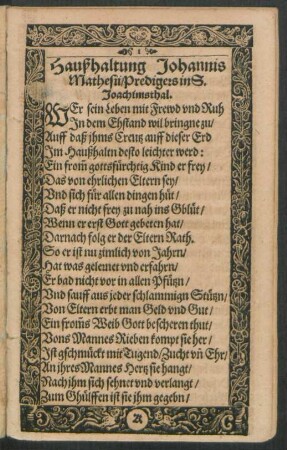 1
Haußhaltung Johannis
Mathesii/Predigers in S.
Joachimsthal.
WEr sein Leben mit Frewd vnd Ruh
In dem Ehstand wil bringne zu/
Auff daß jhms Creutz auff dieser Erd
Im Haußhaltn desto leichter werd:
Ein from̃ gottsfürchtig Kind er frey/
Das von ehrlichen Eltern sey/
Vnd sich für allen dingen hüt/
Daß er nicht frey zu nah ins Gblüt/
Wenn er erst Gott gebeten hat/
Darnach folg er der Eltern Rath.
So er ist nu zimlich von Jahrn/
Hat was gelernet vnd erfahrn/
Er bad nicht vor in allen Pfützn/
Vnd sauff aus jeder schlammign Stützn/
Von Eltern erbt man Geld vnd Gut/
Ein from̃s Weib Gott bescheren thut/
Vons Mannes Rieben kompt sie her/
Ist gschmückt mit Tugend/Zucht vñ Ehr/
An jhres Mannes Hertz sie hangt/
Nach jhm sich sehnet vnd verlangt/
Zum Ghülffen ist sie jhm gegebn/
A